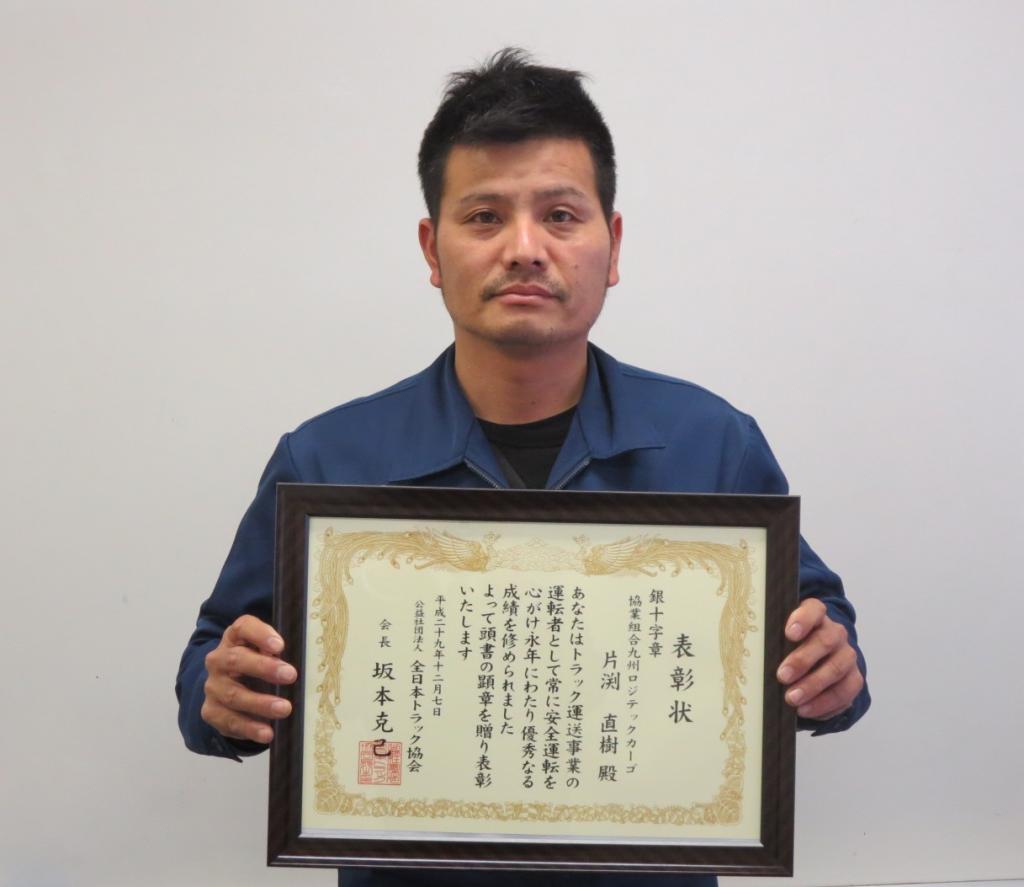 表彰状
銀十字章
協業組合九州ロジテックカーゴ
片渕 直樹 殿
あなたはトラック運送事業の
運転者として常に安全運転を
心がけ永年にわたり優秀なる
成績を修められました
よって頭書の顕章を贈り表彰
いたします
平成二十九年十二月七日
公益社団法人 全日本トラック協会
会長 坂本克己